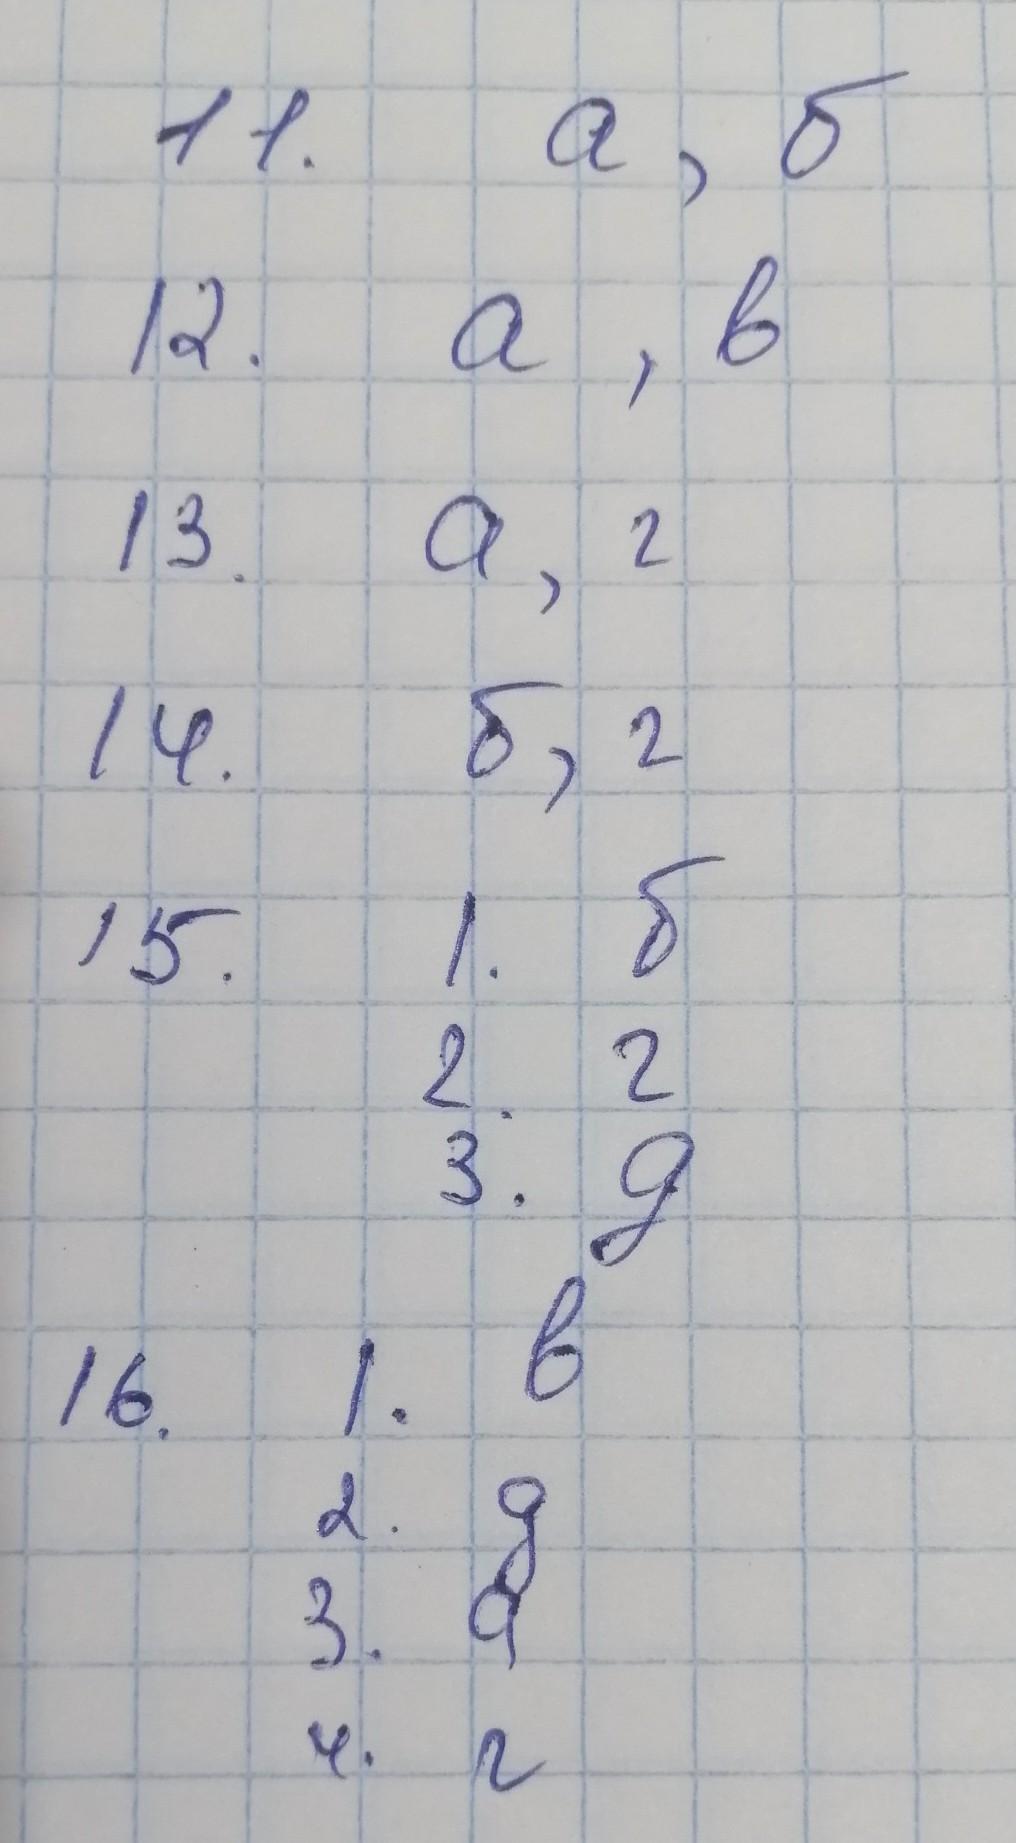 11. а, б
12. а, в
13. а, г
14. б, г
15. 1. б
2. г
3. д
16. 1. в
2. д
3. а
4. г